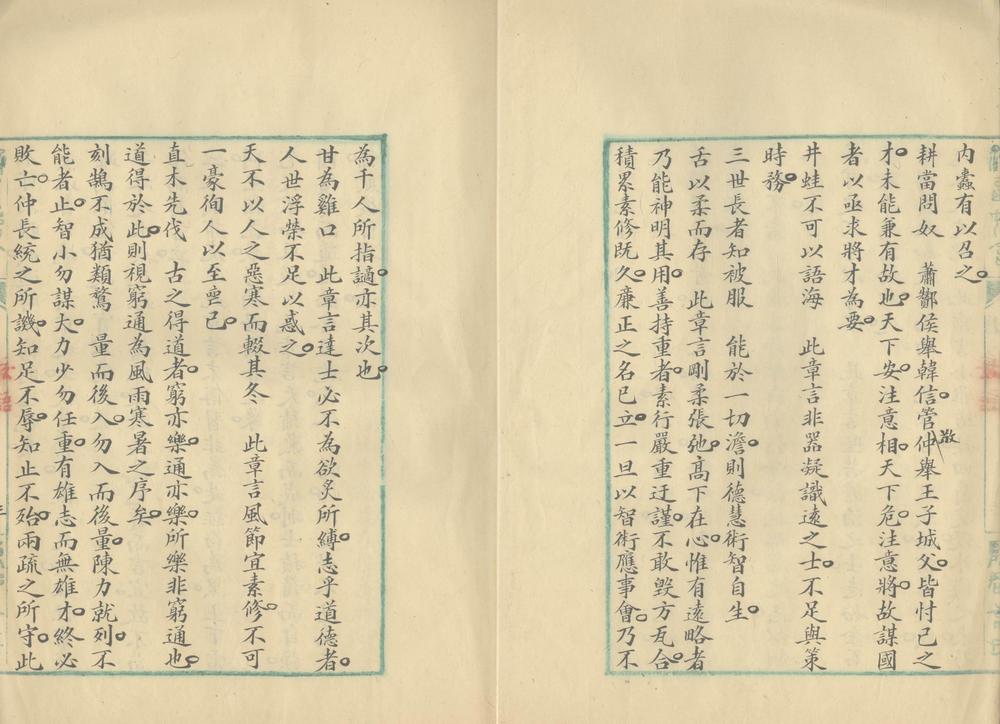 內蠹有以召之
耕當問奴　蕭酇侯舉韓信管仲散舉王子城父皆忖已之
才未能兼有故也天下安注意相天下危注意將故謀國
者以亟求將才為要
井蛙不可以語海　此章言非器凝識遠之士不足與策
時務
三世長者知被服　能於一切澹則德慧術智自生
舌以柔而存　此章言剛柔張弛高下在心惟有遠略者
乃能神明其用善持重者素行嚴重迂謹不敢毀方瓦合
積累素修既久廉正之名已立一旦以智術應事會乃不
為千人所指謫亦其次也
甘為雞口　此章言達士必不為欲炙所縛志乎道德者
人世浮榮不足以惑之
天不以人之惡寒而輟其冬　此章言風節宜素修不可
一豪徇人以至喪已
直木先伐　古之得道者窮亦樂通亦樂所樂非窮通也
道得於此則視窮通為風雨寒暑之序矣
刻鵠不成猶類鶩　量而後入勿入而後量陳力就列不
能者止智小勿謀大力少勿任重有雄志而無雄才終必
敗亡仲長統之所譏知足不辱知止不殆兩疏之所守此